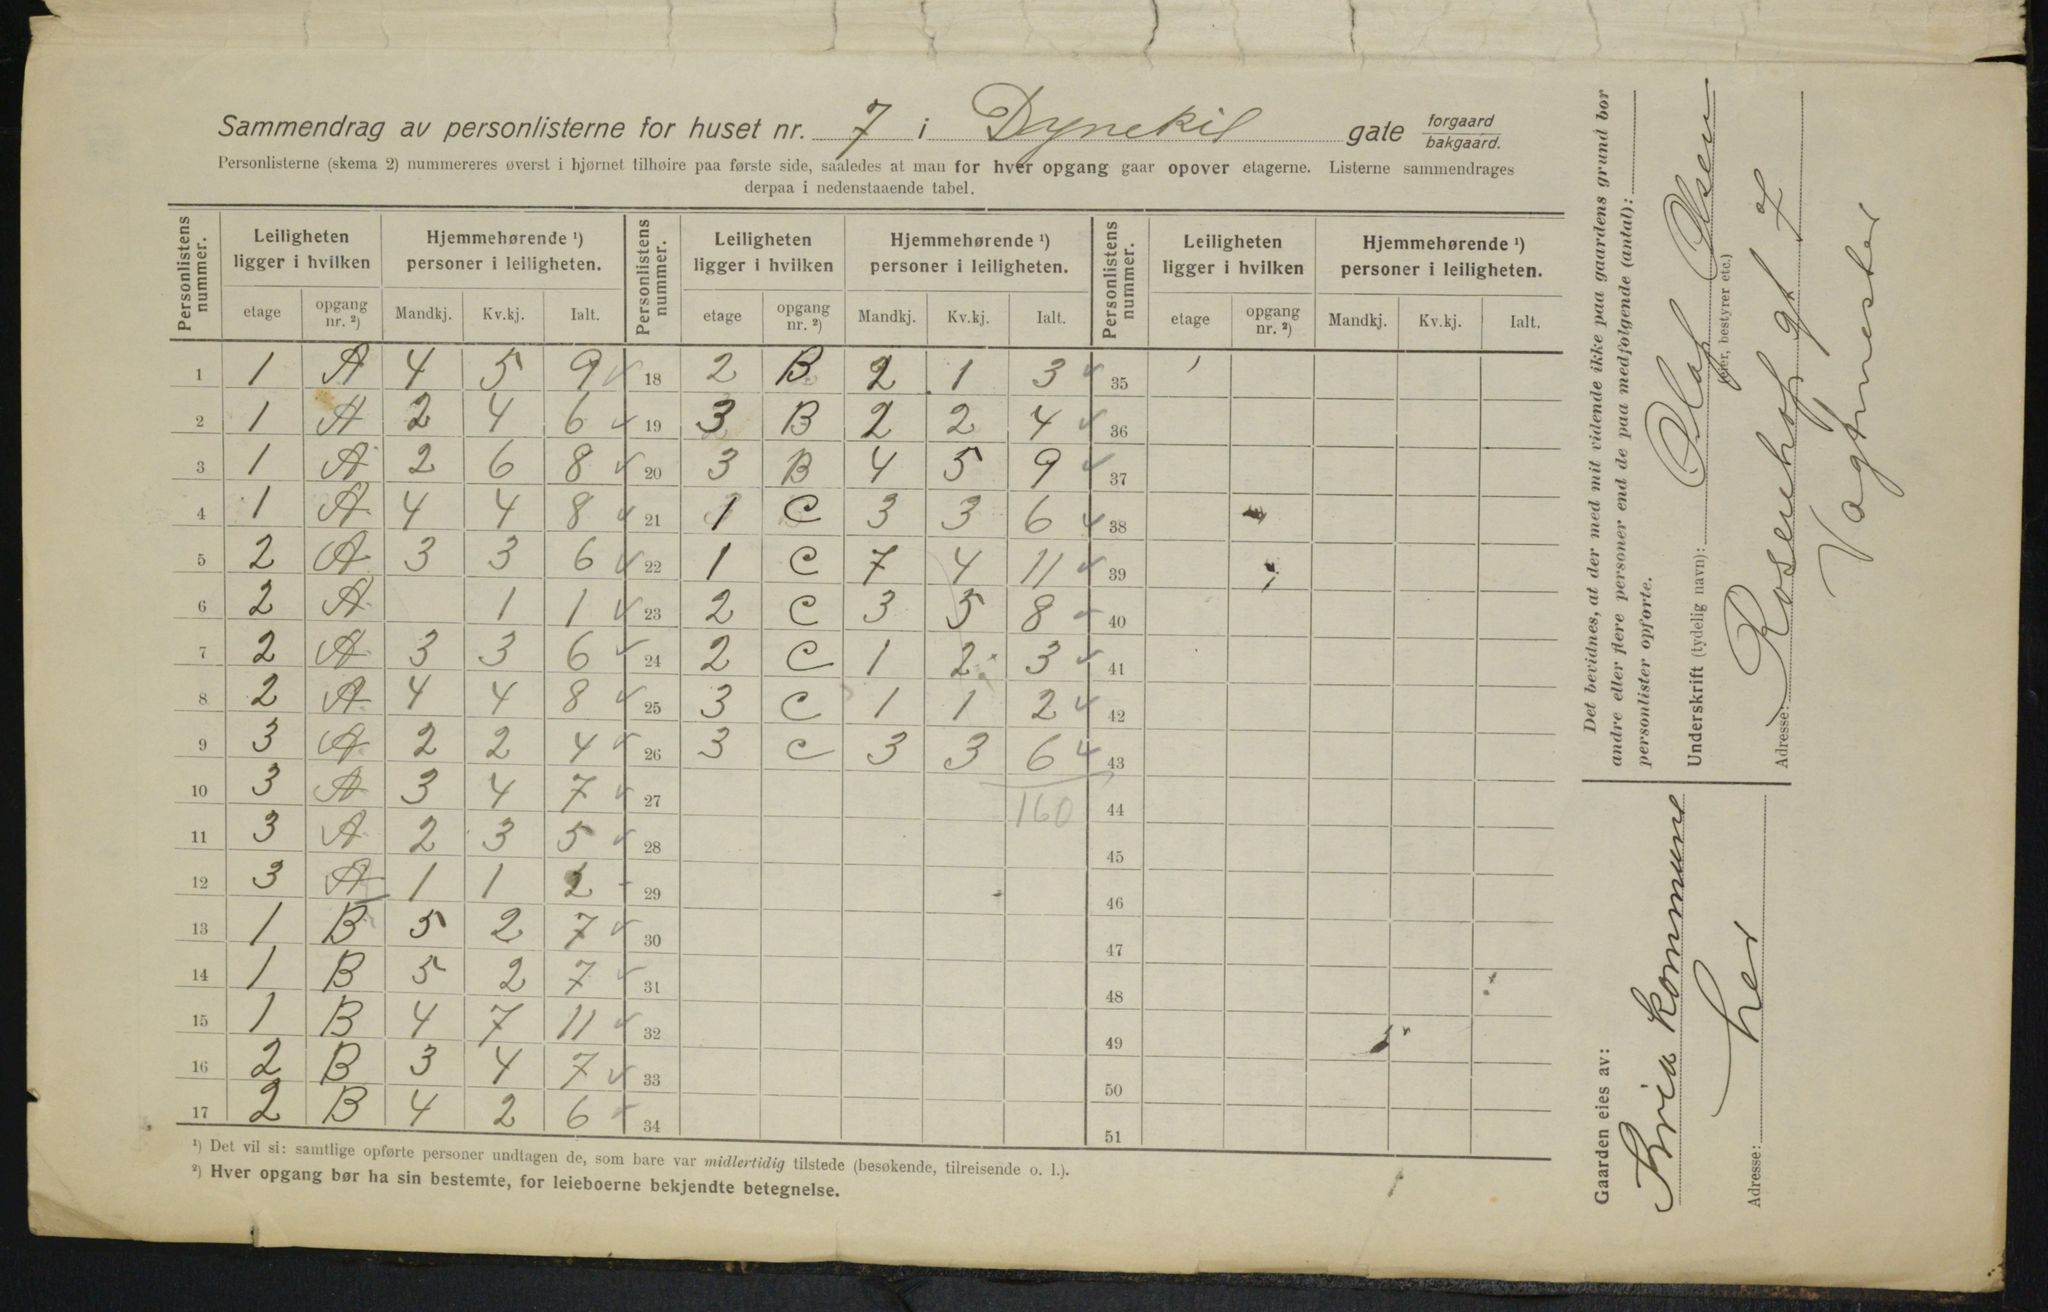 Sammendrag av personlisterne for huset nr. 7 i Dynekil gate forgaard bakgaard.
Personlisterne (skema 2) nummereres øverst i hjørnet tilhøire paa første side, saaledes at man for hver opgang gaar opover etagerne. Listerne sammendrages
derpaa i nedenstaaende tabel.
Personlistens nummer. Leiligheten ligger i hvilken Hjemmehørende ¹) personer i leiligheten. Personlistens nummer. Leiligheten ligger i hvilken Hjemmehørende ¹) personer i leiligheten. Personlistens nummer. Leiligheten ligger i hvilken Hjemmehørende ¹) personer i leiligheten.
etage opgang nr. ²) Mandkj. Kv.kj. Ialt. etage opgang nr. ²) Mandkj. Kv.kj. Ialt. etage opgang nr. ²) Mandkj. Kv.kj. Ialt.
1 1 A 4 5 9 18 2 B 2 1 3 35
2 1 A 2 4 6 19 3 B 2 2 4 36
3 1 A 2 6 8 20 3 B 4 5 9 37
4 1 A 4 4 8 21 1 C 3 3 6 38
5 2 A 3 3 6 22 1 C 7 4 11 39
6 2 A 1 1 23 2 C 3 5 8 40
7 2 A 3 3 6 24 2 C 1 2 3 41
8 2 A 4 4 8 25 3 C 1 1 2 42
9 3 A 2 2 4 26 3 C 3 3 6 43
10 3 A 3 4 7 27 160 44
11 3 A 2 3 5 28 45
12 3 A 1 1 2 29 46
13 1 B 5 2 7 30 47
14 1 B 5 2 7 31 48
15 1 B 4 7 11 32 49
16 2 B 3 4 7 33 50
17 2 B 4 2 6 34 51
¹) Det vil si: samtlige opførte personer undtagen de, som bare var midlertidig tilstede (besøkende, tilreisende o. l.).
²) Hver opgang bør ha sin bestemte, for leieboerne bekjendte betegnelse.
Det bevidnes, at der med mit vidende ikke paa gaardens grund bor
andre eller flere personer end de paa medfølgende (antal):
personlister opførte.
Underskrift (tydelig navn): Olaf Olsen
(eier, bestyrer etc.)
Adresse: Rosenhof gt 7
Vagtmester
Gaarden eies av:
Kria kommune
Adresse: her